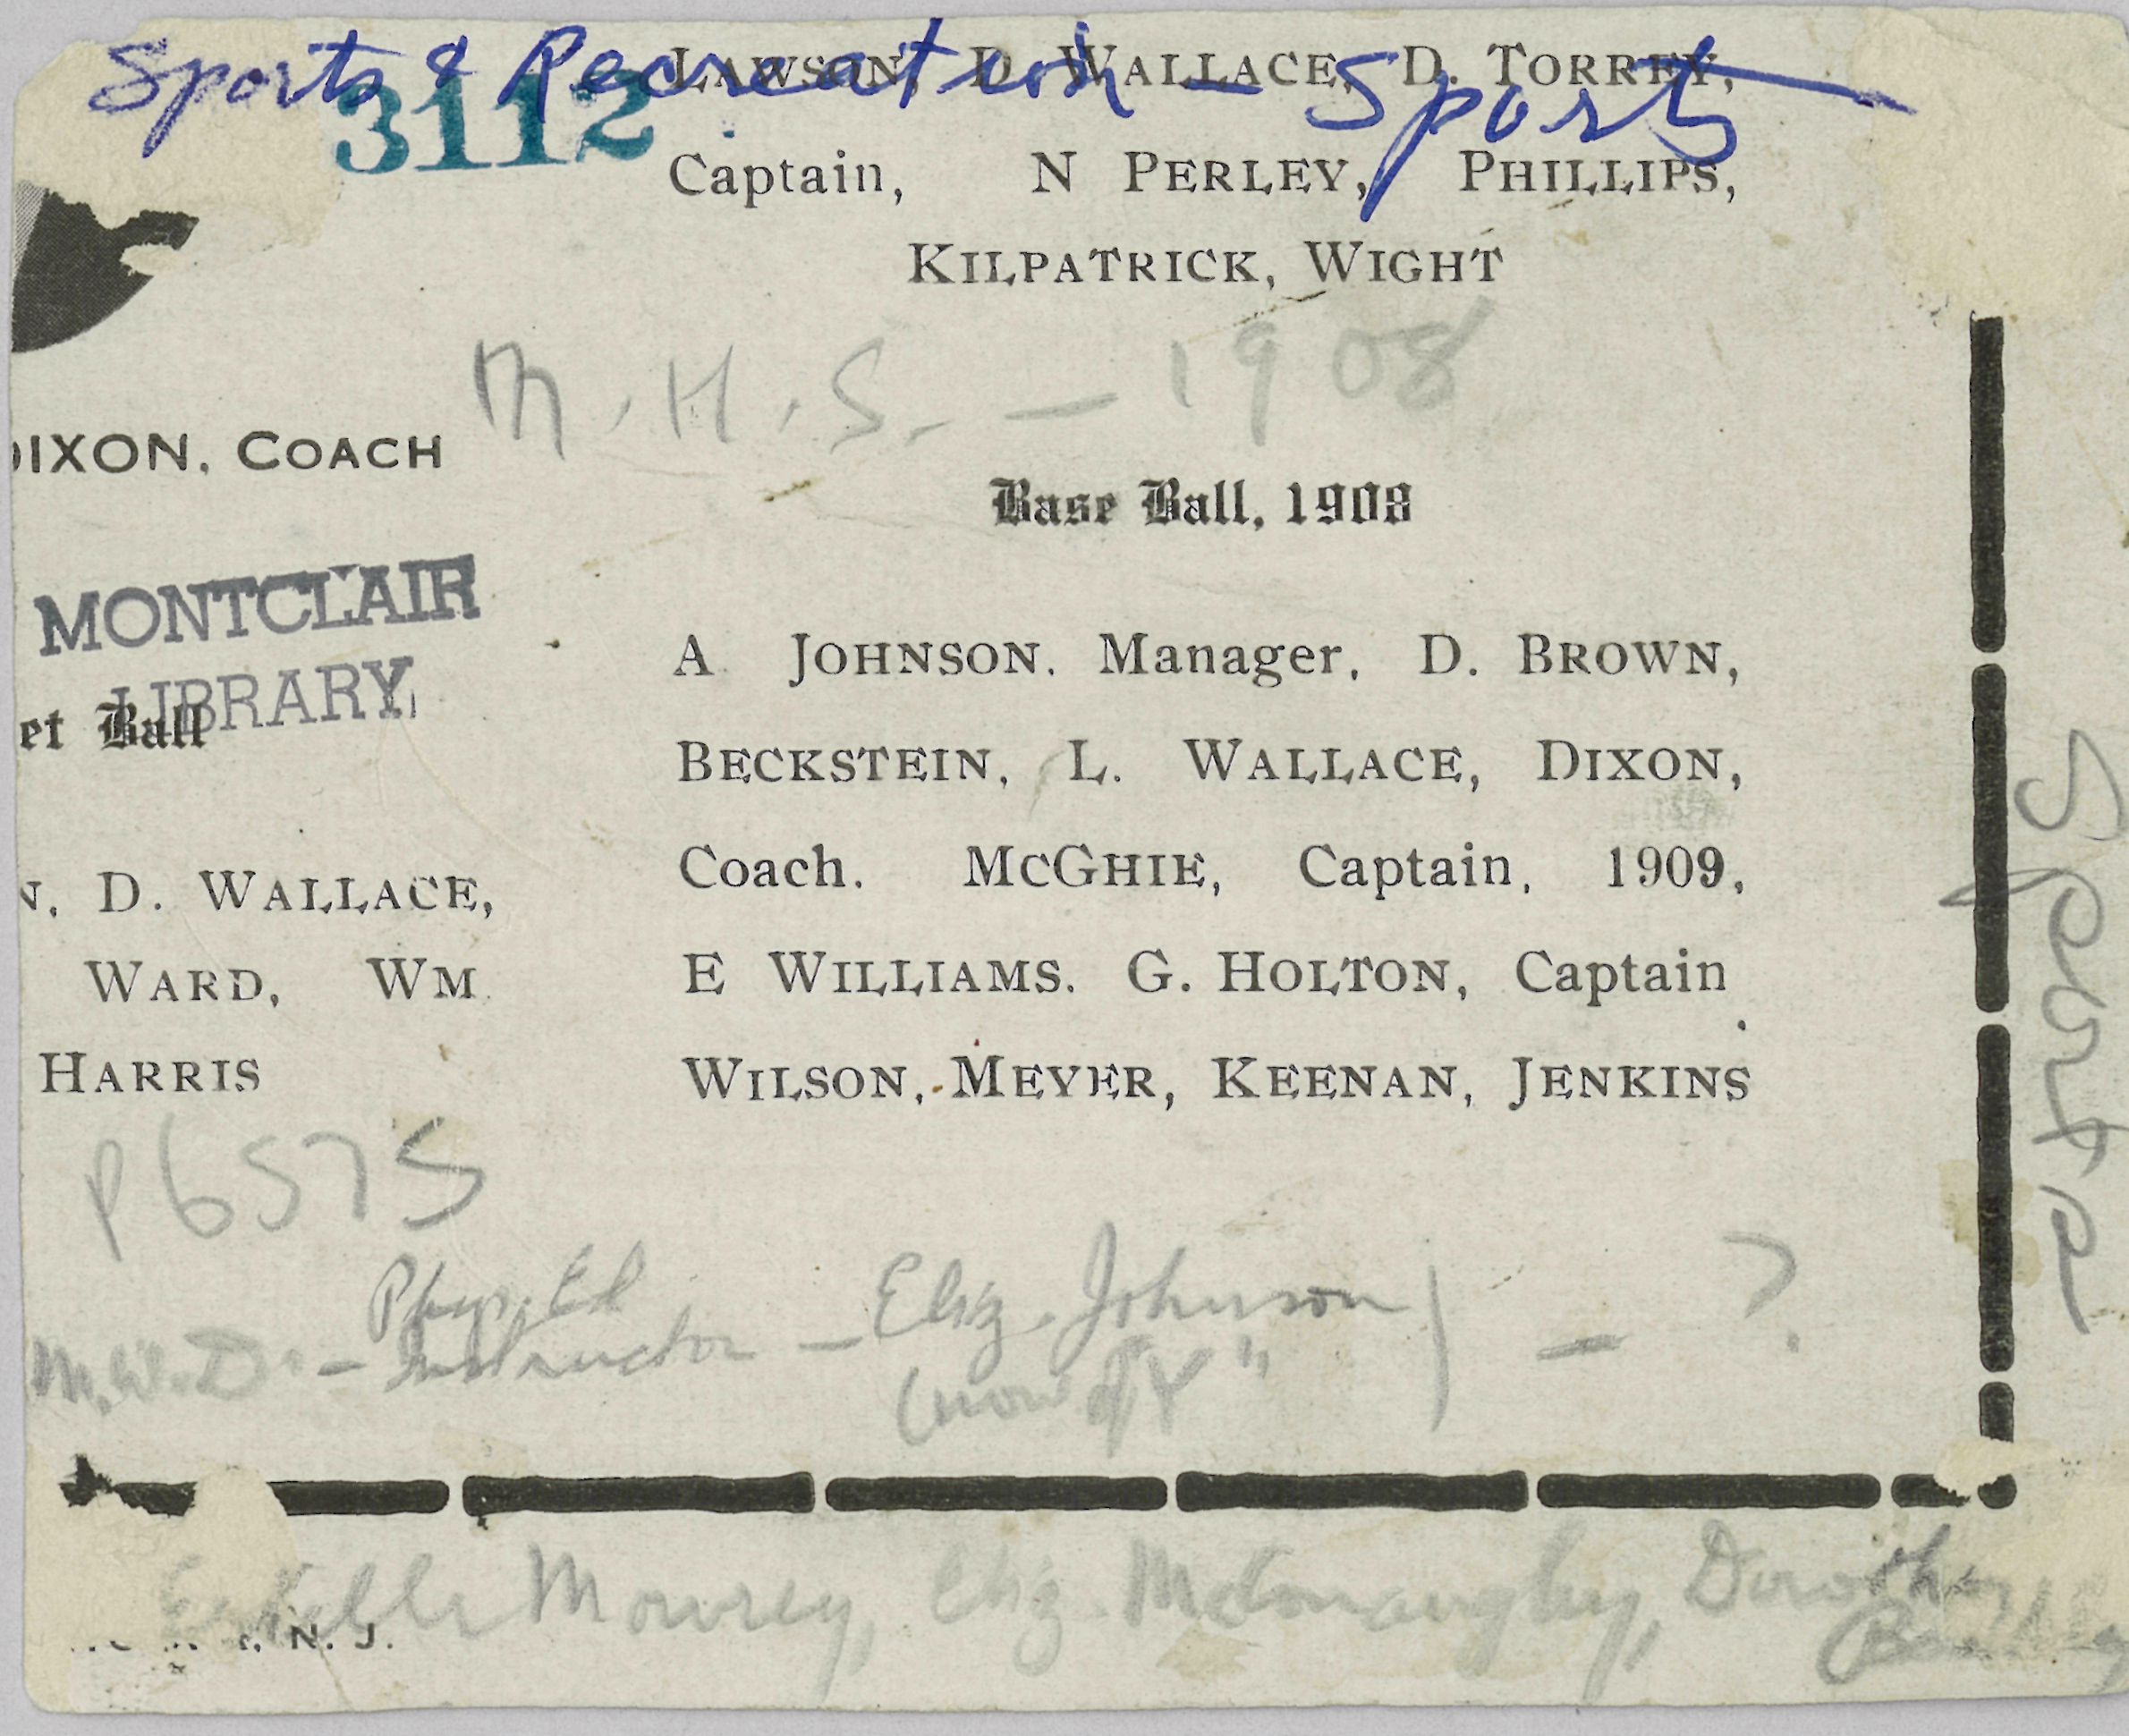 Sports & Recreation - Sports
3112
LAWSON, D. WALLACE, D. TORREY,
Captain, N PERLEY, PHILLIPS,
KILPATRICK, WIGHT
M.H.S. - 1908
DIXON, COACH
Base Ball, 1908
MONTCLAIR
LIBRARY
et Ball
A. JOHNSON. Manager, D. BROWN,
BECKSTEIN, L. WALLACE, DIXON,
Coach. MCGHIE, Captain, 1909,
E WILLIAMS. G. HOLTON, Captain
WILSON, MEYER, KEENAN, JENKINS
N, D. WALLACE,
WARD, WM.
HARRIS
P6575
Phys. Ed
M.W.D. - Instructor - Eliz. Johnson) - ?
(now "Y"
Sports
Estelle Mowrey, Eliz. McConaughy, Dorothy
N. J.